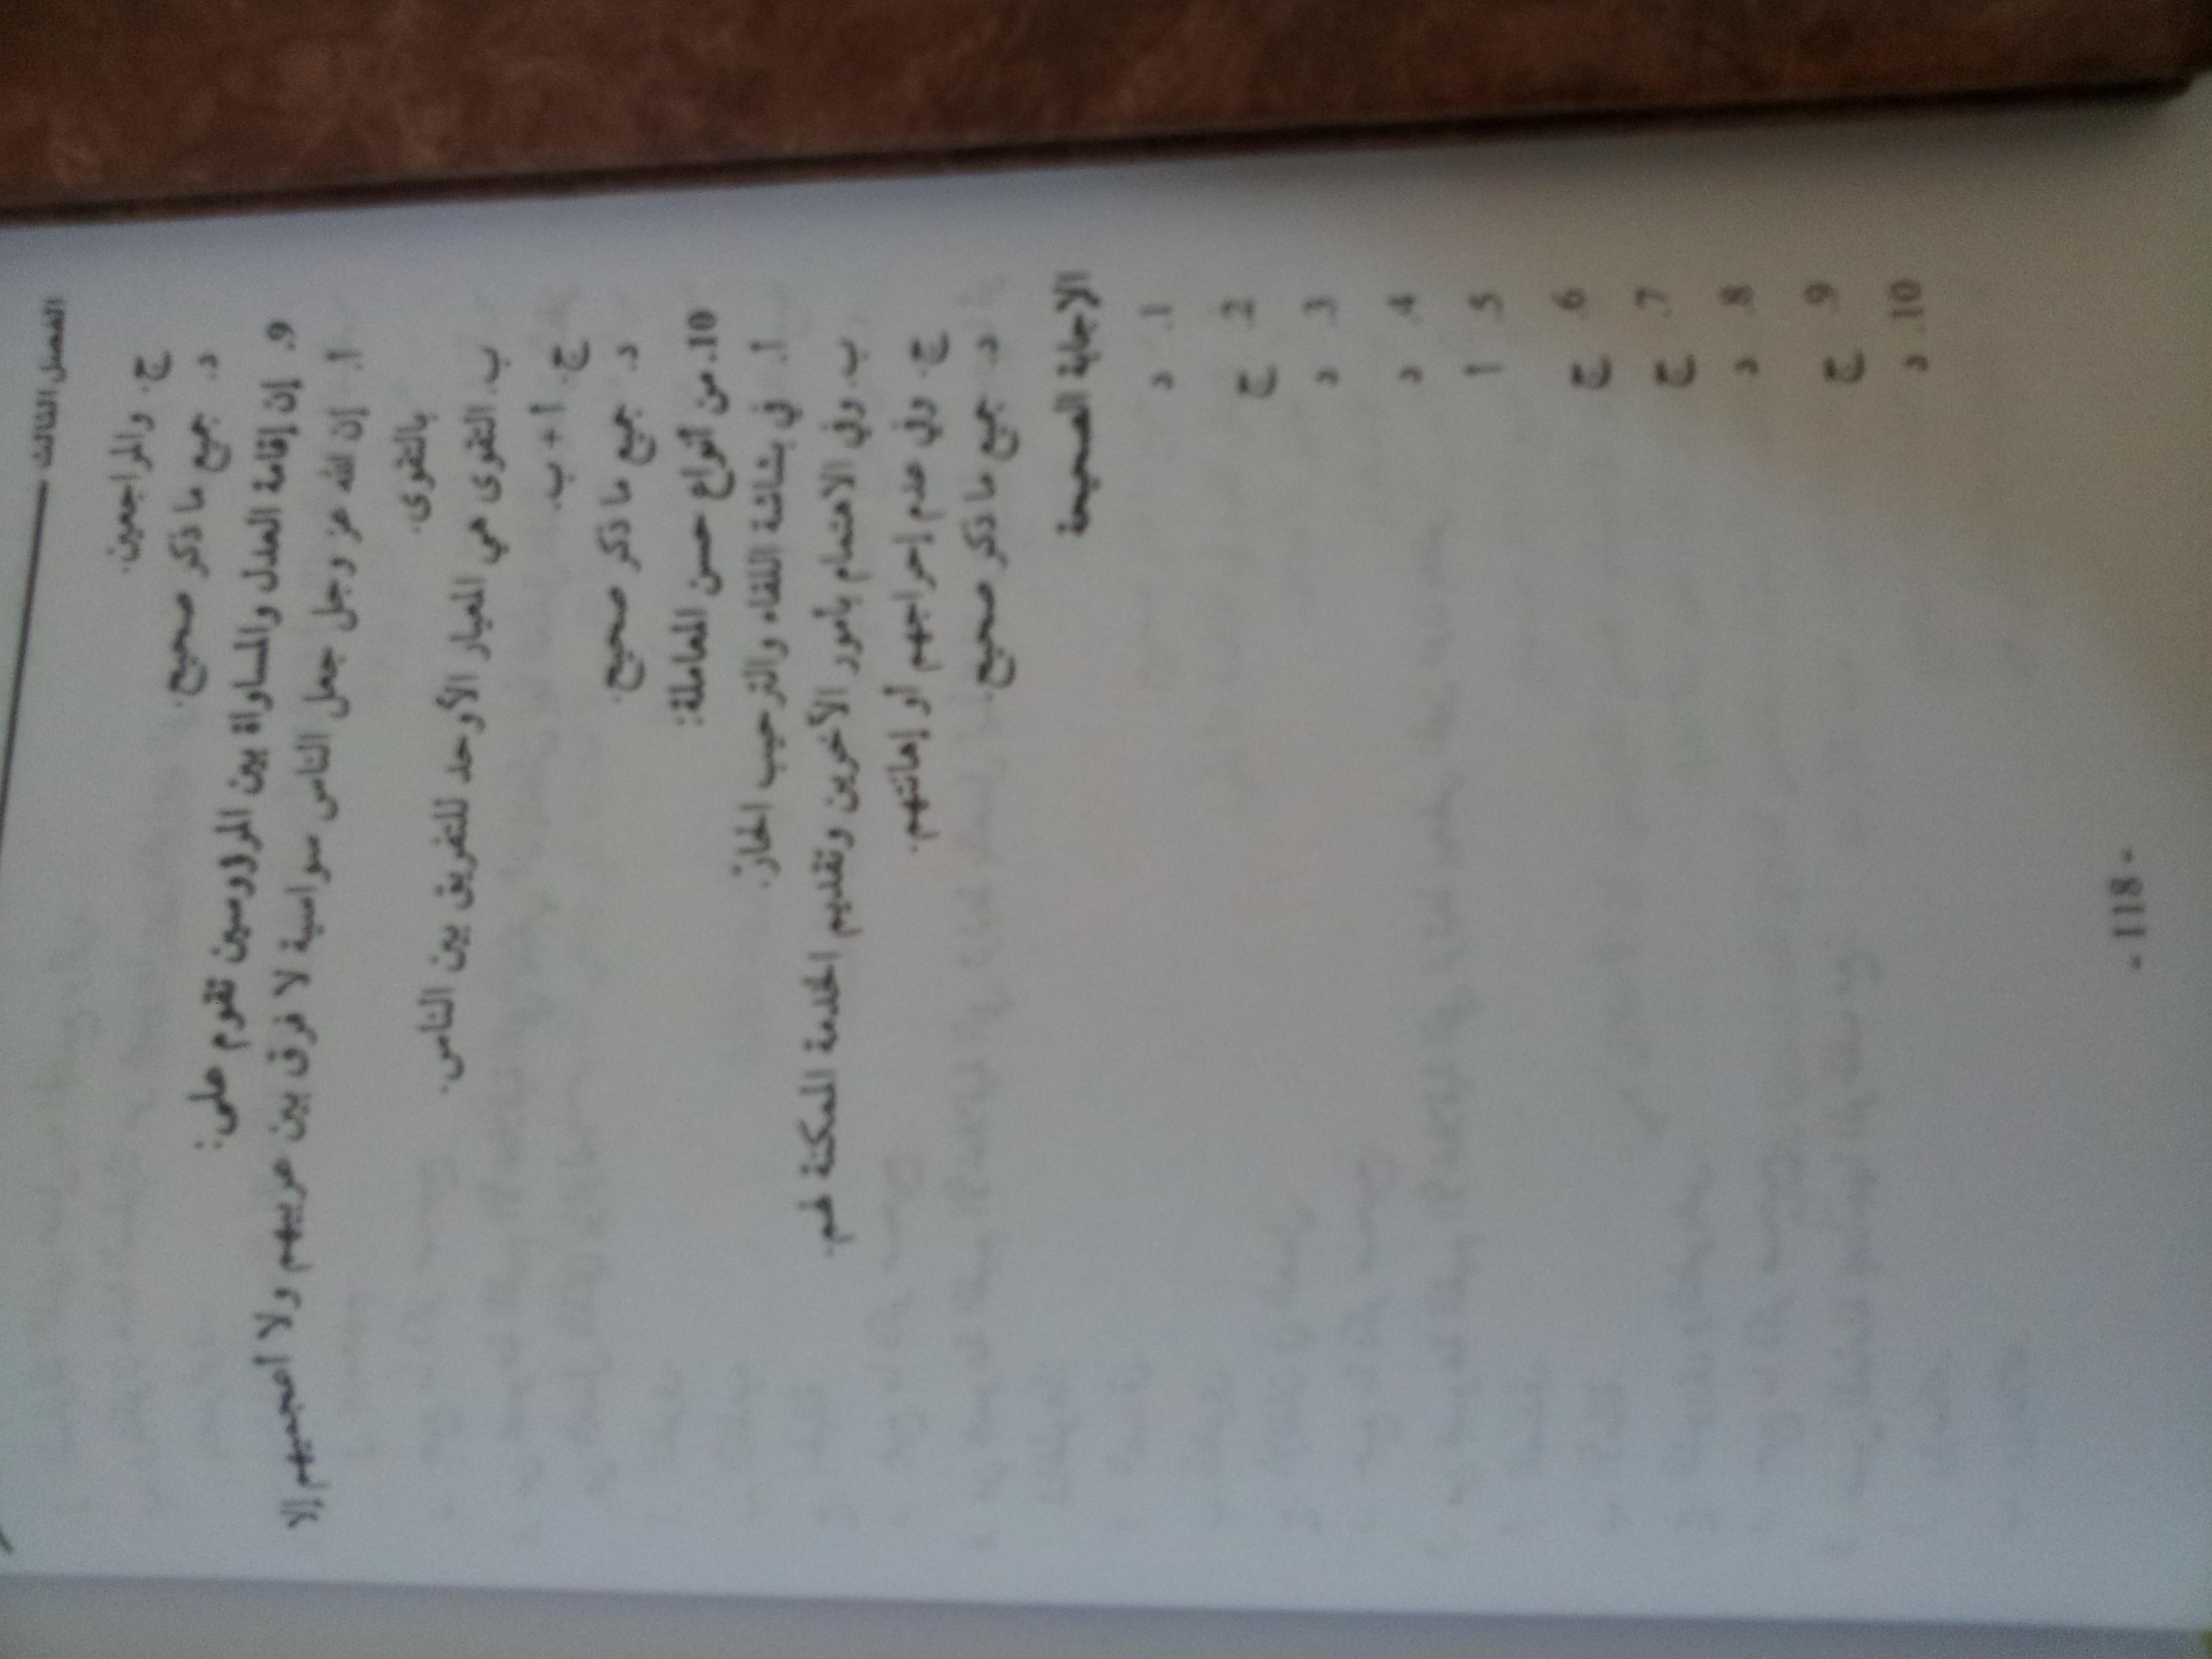 الفصل الثالث
ج. والمراجعين.
د. جميع ما ذكر صحيح.
9. إن إقامة العدل والمساواة بين المرؤوسين تقوم على:
أ. إن الله عز وجل جعل الناس سواسية لا فرق بين عربيهم ولا أعجميهم إلا
بالتقوى.
ب. التقوى هي المعيار الأوحد للتفريق بين الناس.
ج. أ + ب.
د. جميع ما ذكر صحيح.
10. من أنواع حسن المعاملة:
أ. في بشاشة اللقاء والترحيب الحارّ.
ب. وفي الاهتمام بأمور الآخرين وتقديم الخدمة الممكنة لهم.
ج. وفي عدم إحراجهم أو إهانتهم.
د. جميع ما ذكر صحيح.
الاجابة الصحيحة
1. د
2. ج
3. د
4. د
5. أ
6. ج
7. ج
8. د
9. ج
10. د
- 118 -